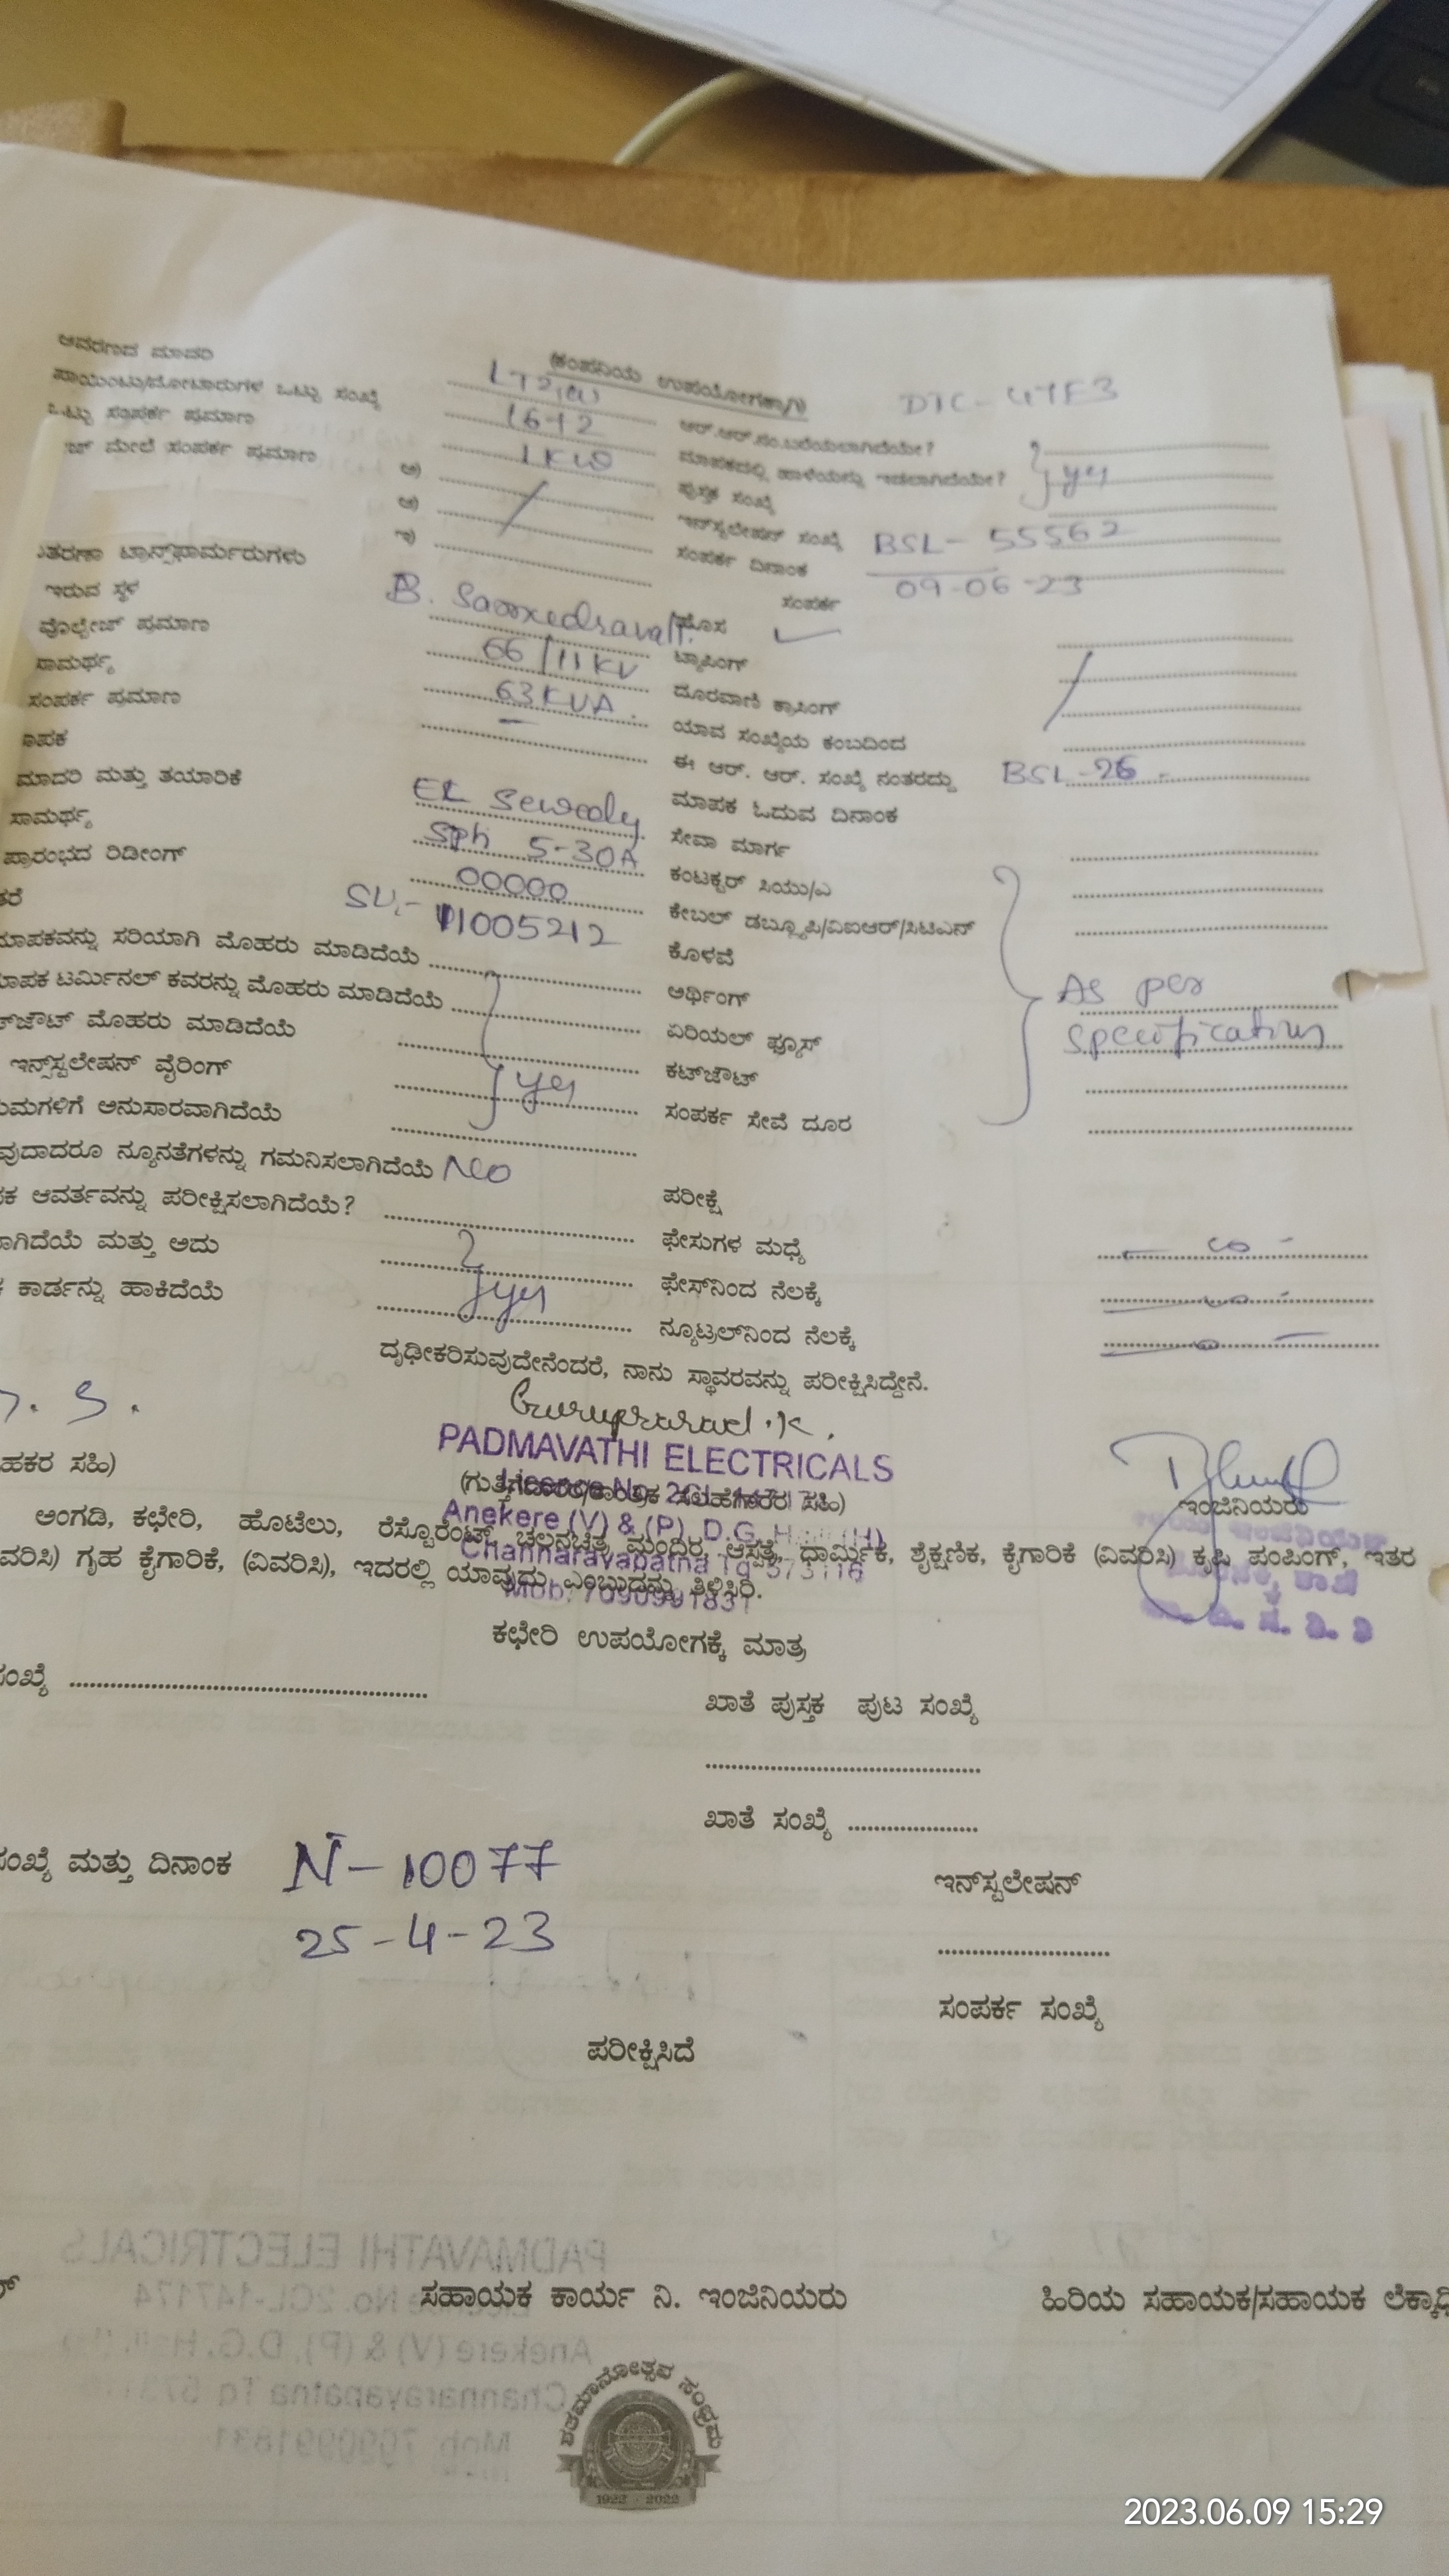 (ಕಂಪನಿಯ ಉಪಯೋಗಕ್ಕಾಗಿ)
ಆವರಣದ ಮಾದರಿ
DTC-
ಪಾಯಿಂಟು/ಮೋಟಾರುಗಳ ಒಟ್ಟು ಸಂಖ್ಯೆ
ಆರ್.ಆರ್.ನಂ.ಬರೆಯಲಾಗಿದೆಯೇ?
ಒಟ್ಟು ಸಂಪರ್ಕ ಪ್ರಮಾಣ 1KW
ಮಾಪಕದಲ್ಲಿ ಹಾಳೆಯನ್ನು ಇಡಲಾಗಿದೆಯೇ? yes
ಮೇಲೆ ಸಂಪರ್ಕ ಪ್ರಮಾಣ ಅ)
ಪುಸ್ತಕ ಸಂಖ್ಯೆ
ಆ)
ಇನ್‌ಸ್ಟಲೇಷನ್ ಸಂಖ್ಯೆ BSL- 55562
ಇ)
ಸಂಪರ್ಕ ದಿನಾಂಕ 09-06-23
ಟ್ರಾನ್ಸ್‌ಫಾರ್ಮರುಗಳು
ಸಂಪರ್ಕ
ಇರುವ ಸ್ಥಳ B.
ಹೊಸ ✓
ವೊಲ್ಟೇಜ್ ಪ್ರಮಾಣ 66/11KV
ಟ್ಯಾಪಿಂಗ್
ಸಾಮರ್ಥ್ಯ 63KVA.
ದೂರವಾಣಿ ಕ್ರಾಸಿಂಗ್
ಸಂಪರ್ಕ ಪ್ರಮಾಣ —
ಯಾವ ಸಂಖ್ಯೆಯ ಕಂಬದಿಂದ
ಈ ಆರ್. ಆರ್. ಸಂಖ್ಯೆ ನಂತರದ್ದು BSL-26
ಮಾದರಿ ಮತ್ತು ತಯಾರಿಕೆ
ಮಾಪಕ ಓದುವ ದಿನಾಂಕ
ಸಾಮರ್ಥ್ಯ Sph 5-30A
ಸೇವಾ ಮಾರ್ಗ
ಪ್ರಾರಂಭದ ರಿಡೀಂಗ್ 00000
ಕಂಟಕ್ಟರ್ ಸಿಯು/ಎ
11005212
ಕೇಬಲ್ ಡಬ್ಲ್ಯೂಪಿ/ವಿಐಆರ್/ಸಿಟಿಎನ್
ಮಾಪಕವನ್ನು ಸರಿಯಾಗಿ ಮೊಹರು ಮಾಡಿದೆಯೆ
ಕೊಳವೆ
ಮಾಪಕ ಟರ್ಮಿನಲ್ ಕವರನ್ನು ಮೊಹರು ಮಾಡಿದೆಯೆ
ಅರ್ಥಿಂಗ್ As per
ಮೊಹರು ಮಾಡಿದೆಯೆ
ಏರಿಯಲ್ ಫ್ಯೂಸ್ specification
ಇನ್‌ಸ್ಟಲೇಷನ್ ವೈರಿಂಗ್ yes
ಕಟ್‌ಔಟ್
ಅನುಸಾರವಾಗಿದೆಯೆ
ಸಂಪರ್ಕ ಸೇವೆ ದೂರ
ನ್ಯೂನತೆಗಳನ್ನು ಗಮನಿಸಲಾಗಿದೆಯೆ No
ಪರೀಕ್ಷೆ
ಆವರ್ತವನ್ನು ಪರೀಕ್ಷಿಸಲಾಗಿದೆಯೆ?
ಫೇಸುಗಳ ಮಧ್ಯೆ
ಮತ್ತು ಅದು
ಫೇಸ್‌ನಿಂದ ನೆಲಕ್ಕೆ
ಕಾರ್ಡನ್ನು ಹಾಕಿದೆಯೆ yes
ನ್ಯೂಟ್ರಲ್‌ನಿಂದ ನೆಲಕ್ಕೆ
ದೃಢೀಕರಿಸುವುದೇನೆಂದರೆ, ನಾನು ಸ್ಥಾವರವನ್ನು ಪರೀಕ್ಷಿಸಿದ್ದೇನೆ.
Guruprasad.K.
PADMAVATHI ELECTRICALS
ಸಹಿ)
ಇಂಜಿನಿಯರು
Anekere (V) & (P), D.G.
ಅಂಗಡಿ, ಕಛೇರಿ, ಹೊಟೆಲು, ರೆಸ್ಟೊರೆಂಟ್, ಚಲನಚಿತ್ರ ಮಂದಿರ, ಆಸ್ಪತ್ರೆ, ಧಾರ್ಮಿಕ, ಶೈಕ್ಷಣಿಕ, ಕೈಗಾರಿಕೆ (ವಿವರಿಸಿ) ಕೃಷಿ ಪಂಪಿಂಗ್, ಇತರ
Channarayapatna Tq-573116
ಗೃಹ ಕೈಗಾರಿಕೆ, (ವಿವರಿಸಿ), ಇದರಲ್ಲಿ ಯಾವುದು ಎಂಬುದನ್ನು ತಿಳಿಸಿರಿ.
Mob: 7090991831
ಕಛೇರಿ ಉಪಯೋಗಕ್ಕೆ ಮಾತ್ರ
ಸಂಖ್ಯೆ
ಖಾತೆ ಪುಸ್ತಕ ಪುಟ ಸಂಖ್ಯೆ
ಖಾತೆ ಸಂಖ್ಯೆ
ಸಂಖ್ಯೆ ಮತ್ತು ದಿನಾಂಕ N-10077
ಇನ್‌ಸ್ಟಲೇಷನ್
25-4-23
ಸಂಪರ್ಕ ಸಂಖ್ಯೆ
ಪರೀಕ್ಷಿಸಿದೆ
ಸಹಾಯಕ ಕಾರ್ಯ ನಿ. ಇಂಜಿನಿಯರು
ಹಿರಿಯ ಸಹಾಯಕ/ಸಹಾಯಕ
ಶತಮಾನೋತ್ಸವ ಸಂಭ್ರಮ
1922 - 2022
2023.06.09 15:29